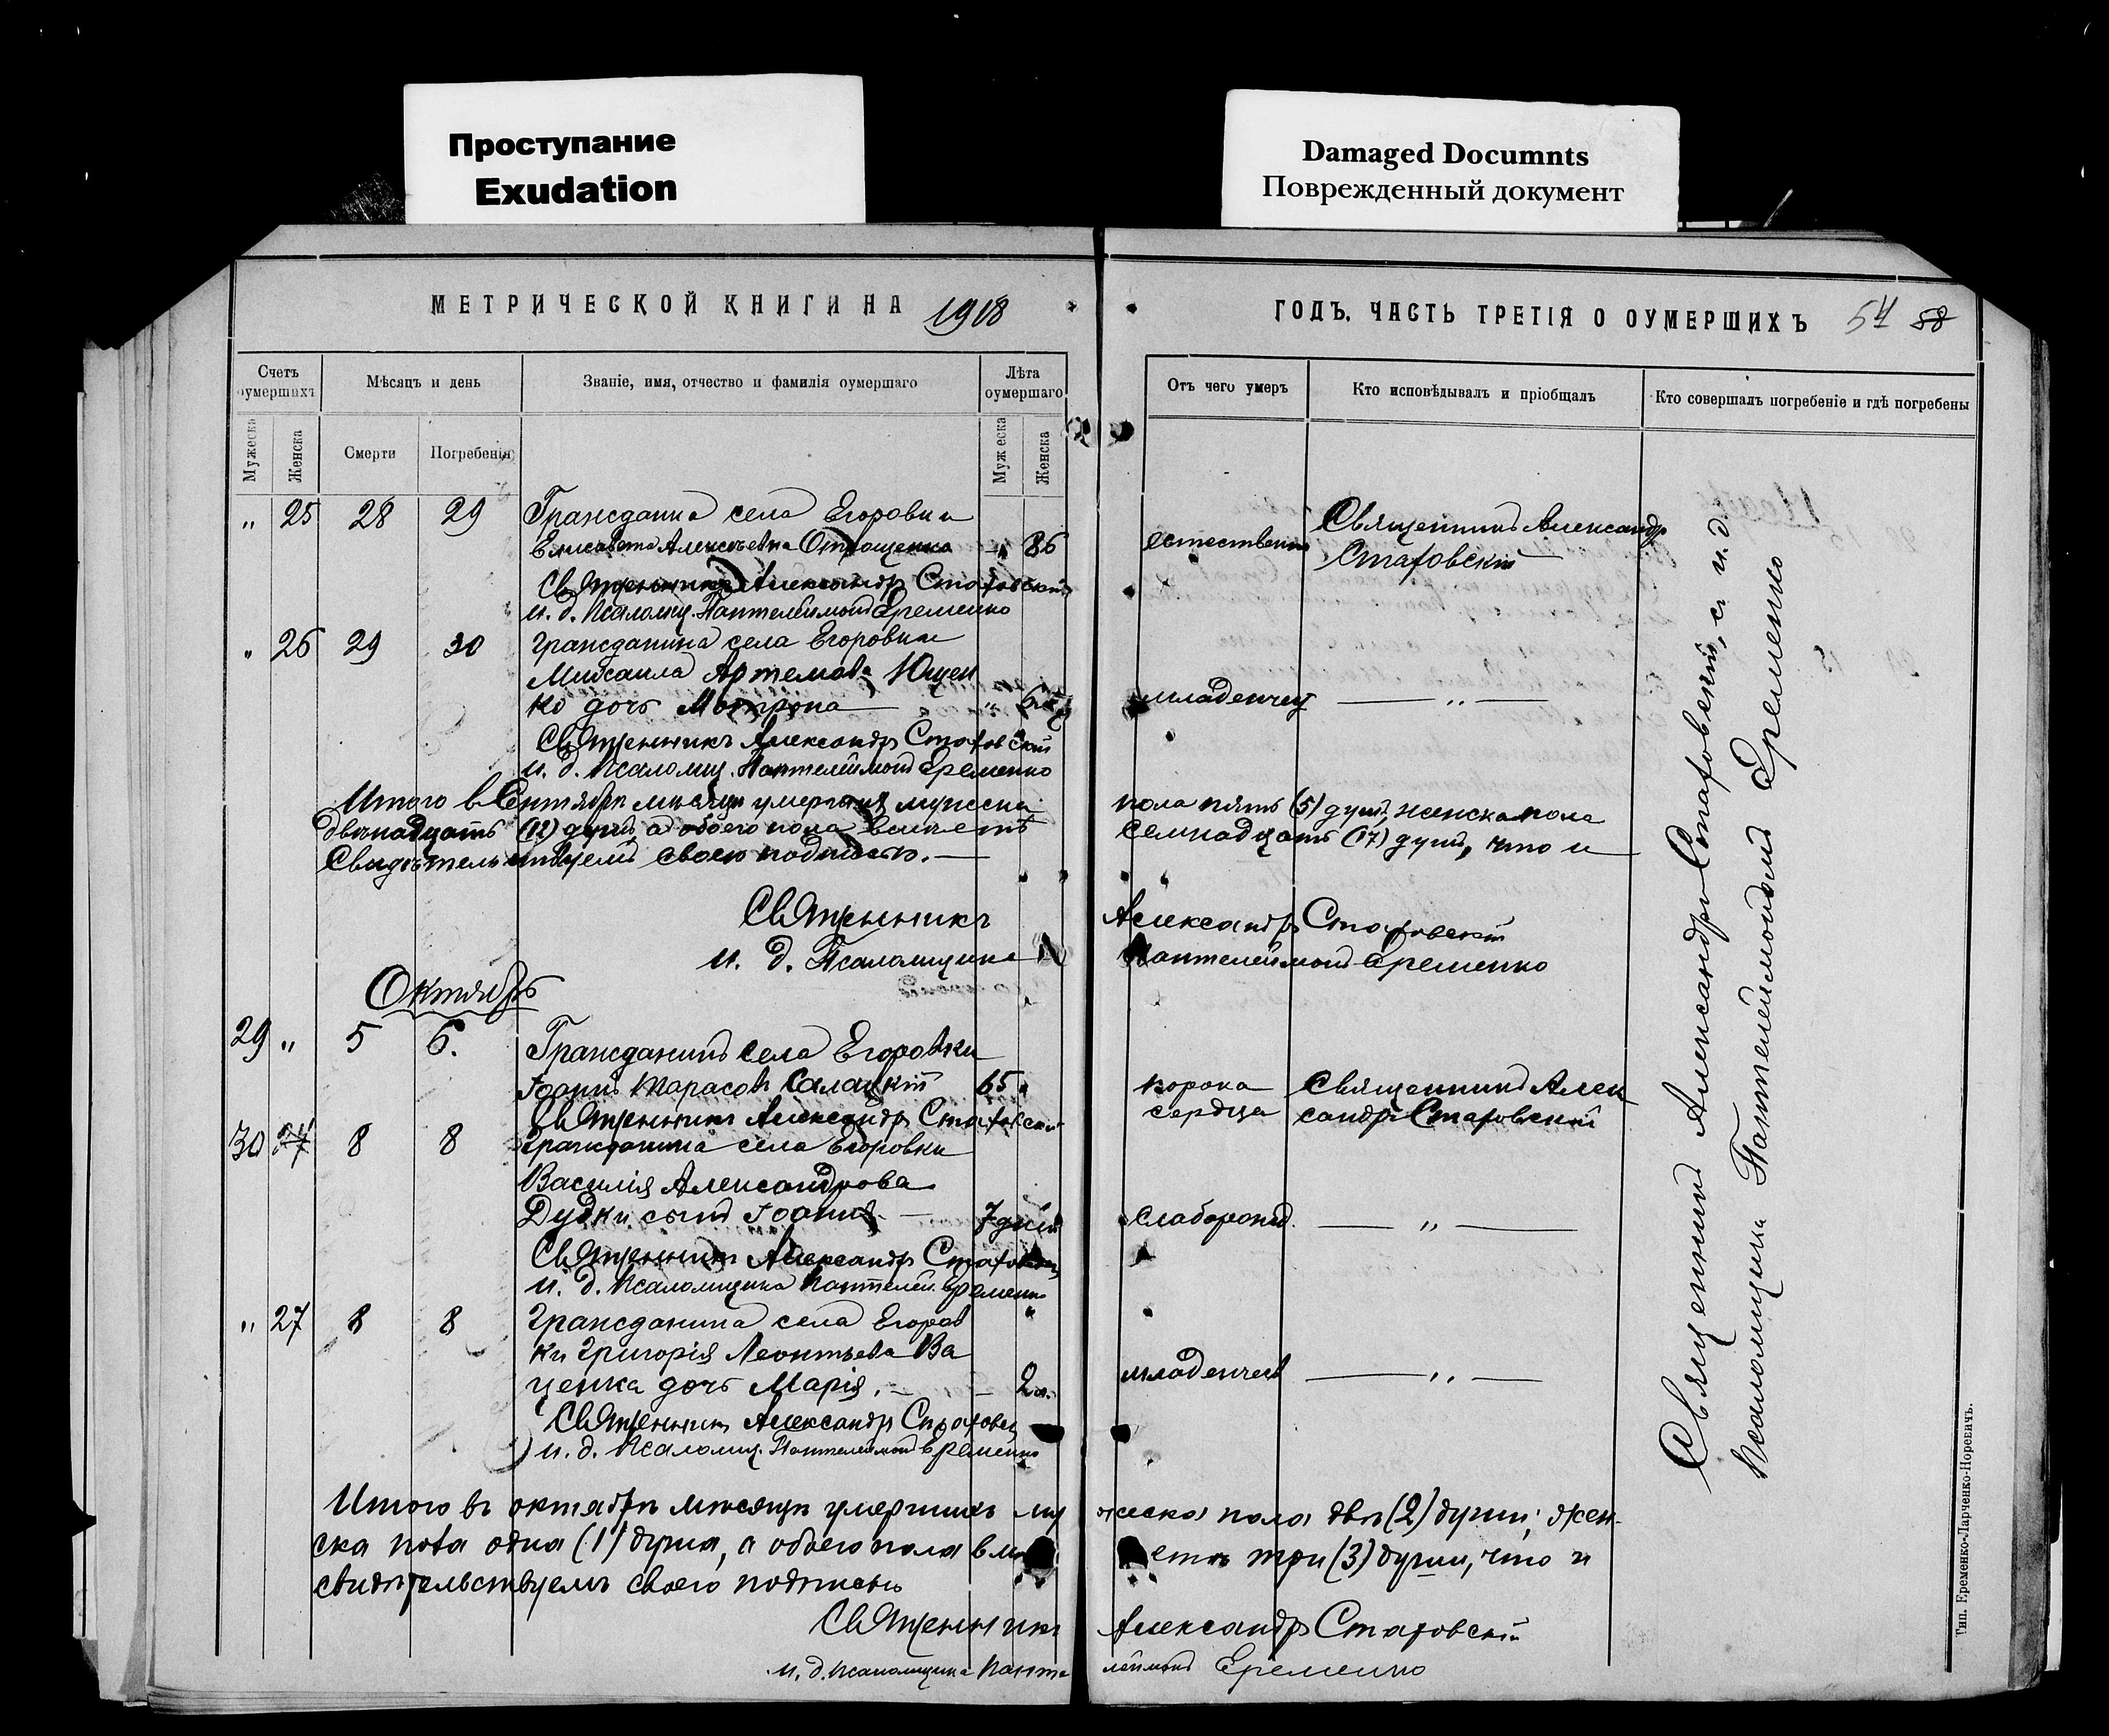 Проступание
Exudation
Damaged Documnts
Поврежденный документ
МЕТРИЧЕСКОЙ КНИГИ НА 1918
ГОДЪ. ЧАСТЬ ТРЕТІЯ О ОУМЕРШИХЪ 54 58
Счетъ оумершихъ
Мѣсяцъ и день
Званіе, имя, отчество и фамилія оумершаго
Лѣта оумершаго
Отъ чего умеръ
Кто исповѣдывалъ и пріобщалъ
Кто совершалъ погребеніе и гдѣ погребены
Мужеска
Женска
Смерти
Погребенія
Мужеска
Женска
„ 25 28 29 Гражданка села Егоровки
Елисавета Алексѣевна „ 86
естествен Священникъ Александр
Стаховскій
Священникъ Александръ Стаховскій
и. д. Псаломщ. Пантелеймонъ Еременко
„ 26 29 30 Гражданина села Егоровки
Михаила Артемова Ющен
ко дочь Матрона „
младенчес — „ —
Священникъ Александръ Стаховскій
и. д. Псаломщ. Пантелеймонъ Еременко
Итого въ Сентябрѣ мѣсяцѣ умершихъ мужеска
пола пять (5) душъ, женска пола
двѣнадцать (12) душъ, а обоего пола вмѣстѣ
семнадцать (17) душъ, что и
Свидѣтельствуемъ своею подписью.
Священникъ Александръ Стаховскій
и. д. Псаломщика Пантелеймонъ Еременко
Октябрь
29 „ 5 6. Гражданинъ села Егоровки
Іоаннъ Тарасовъ Салацкій 65 „
порока Священникъ Алек
сердца сандръ Стаховскій
Священникъ Александръ Стаховскій
30 8 8 Гражданина села Егоровки
Василія Александрова
Дудки сынъ Іоаннъ — 7 дней
слаборожд. — „ —
Священникъ Александръ Стаховскій
и. д. Псаломщика Пантелей. Еременко
„ 27 8 8 Гражданина села Егоров
ки Григорія Леонтьева Ва
ценка дочь Марія. — — 2
младенчес — „ —
Священникъ Александръ Стаховск
и. д. Псаломщ. Пантелеймон Еременко
Итого въ октябрѣ мѣсяцѣ умершихъ му
жеска пола двѣ (2) души, жен-
ска пола одна (1) душа, а обоего пола вмѣ
стѣ три (3) души, что и
свидѣтельствуемъ своею подписью
Священникъ Александръ Стаховскій
и. д. Псаломщика Панте леймонъ Еременко
Священникъ Александръ Стаховскій, с и. д.
Псаломщика Пантелеймономъ Еременко
Тип. Еременко-Ларченко-Норевичъ.